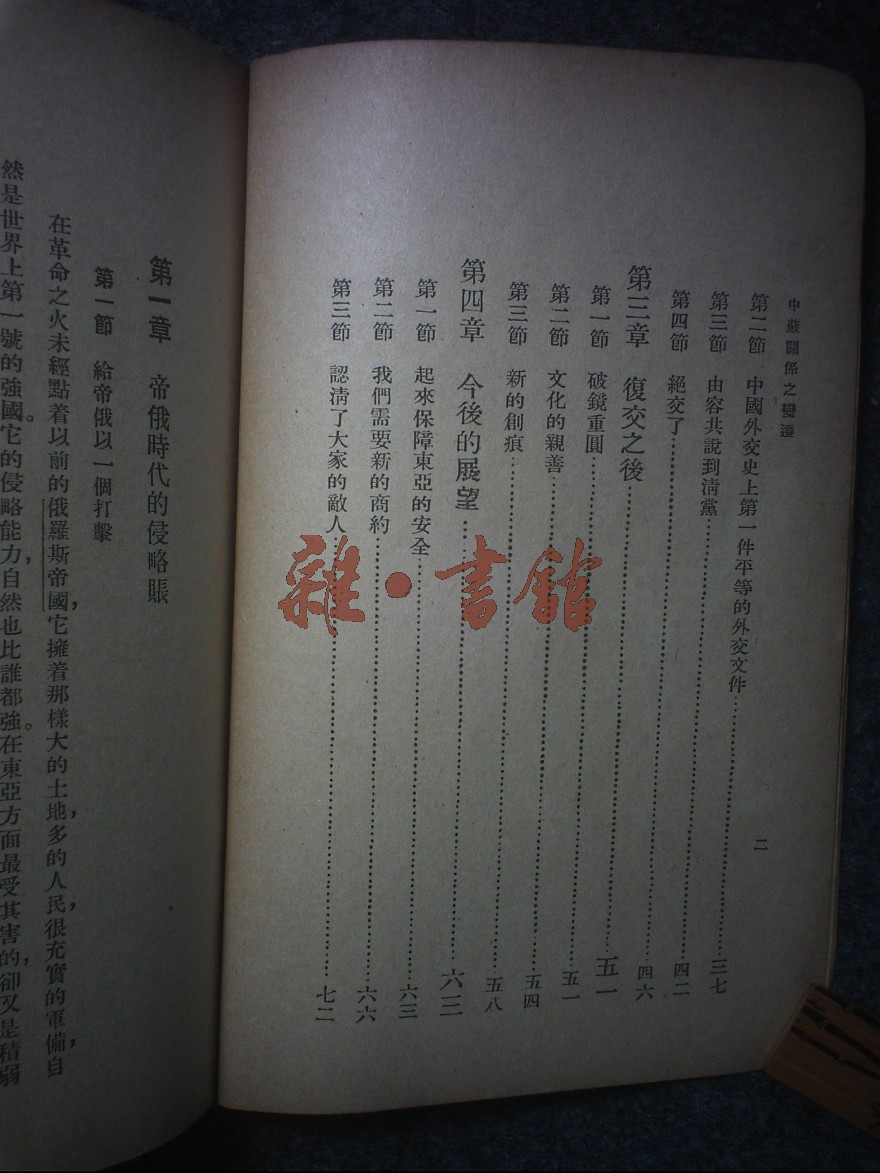 中蘇關係之變遷
二
第二節 中國外交史上第一件平等的外交文件……三七
第三節 由容共說到清黨……四二
第四節 絕交了……四六
第三章 復交之後……五一
第一節 破鏡重圓……五一
第二節 文化的親善……五四
第三節 新的創痕……五八
第四章 今後的展望……六三
第一節 起來保障東亞的安全……六三
第二節 我們需要新的商約……六六
第三節 認清了大家的敵人……七二
雜·書館
第一章 帝俄時代的侵略賬
第一節 給帝俄以一個打擊
在革命之火未經點着以前的俄羅斯帝國,它擁着那樣大的土地,多的人民,很充實的軍備,自
然是世界上第一號的強國。它的侵略能力,自然也比誰都強。在東亞方面最受其害的,卻又是積弱